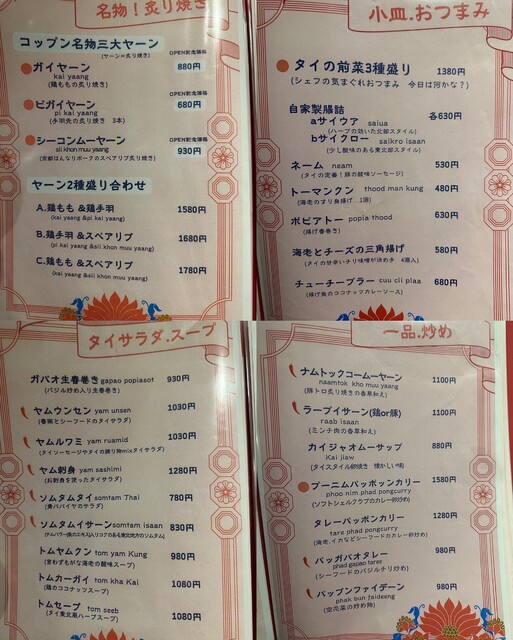 名物！炙り焼き
コップン名物三大ヤーン
(ヤーン=炙り焼き)
OPEN記念価格
ガイヤーン
880円
kai yaang
(鶏ももの炙り焼き)
OPEN記念価格
ピガイヤーン
680円
pi kai yaang
(手羽先の炙り焼き 3本)
OPEN記念価格
シーコンムーヤーン
930円
sii khon muu yaang
(京都はんなりポークのスペアリブ炙り焼き)
ヤーン2種盛り合わせ
A.鶏もも &鶏手羽
1580円
(kai yaang &pi kai yaang)
B.鶏手羽 &スペアリブ
1680円
(pi kai yaang &sii khon muu yaang)
C.鶏もも &スペアリブ
1780円
(kai yaang &sii khon muu yaang)
小皿.おつまみ
タイの前菜3種盛り 1380円
(シェフの気まぐれおつまみ 今日は何かな？)
自家製腸詰
各630円
aサイウア saiua
(ハーブの効いた北部スタイル)
bサイクロー saikro isaan
(少し酸味のある東北部スタイル)
ネーム neam 530円
(タイの定番！豚の酸味ソーセージ)
トーマンクン thood man kung 480円
(海老のすり身揚げ 1個)
ポピアトー popia thood 630円
(揚げ春巻き)
海老とチーズの三角揚げ 580円
(タイの甘辛いチリ味噌が決め手 4個入)
チューチープラー cuu cii plaa 680円
(揚げ魚のココナッツカレーソース)
タイサラダ.スープ
ガパオ生春巻き gapao popiasot 930円
(バジル炒め入り生春巻き)
ヤムウンセン yam unsen 1030円
(春雨とシーフードのタイサラダ)
ヤムルワミ yam ruamid 1030円
(タイソーセージやタイの練り物mixタイサラダ)
ヤム刺身 yam sashimi 1280円
(お刺身を使ったタイサラダ)
ソムタムタイ somtam Thai 780円
(青パパイヤのサラダ)
ソムタムイサーン somtam isaan 830円
トムヤムクン tom yam Kung 980円
(言わずもがな海老の酸味スープ)
トムカーガイ tom kha Kai 1080円
(鶏のココナッツスープ)
トムセープ tom seeb 1080円
(タイ東北風ハーブスープ)
一品.炒め
ナムトックコームーヤーン 1100円
naamtok kho muu yaang
(豚トロ炙り焼きの香草和え)
ラープイサーン(鶏or豚) 1100円
raab isaan
(ミンチ肉の香草和え)
カイジャオムーサップ 880円
Kai jiaw
(タイスタイル卵焼き 懐かしい味)
プーニムパッポッンカリー 1580円
phoo nim phad pongcurry
(ソフトシェルクラブのカレー卵炒め)
タレーパッポンカリー 1280円
tare phad pongcurry
(海老、イカなどシーフードのカレー卵炒め)
パッガパオタレー 980円
phad gapao taree
(シーフードのバジルチリ炒め)
パップンファイデーン 980円
phak bun faideeng
(空芯菜の炒め物)